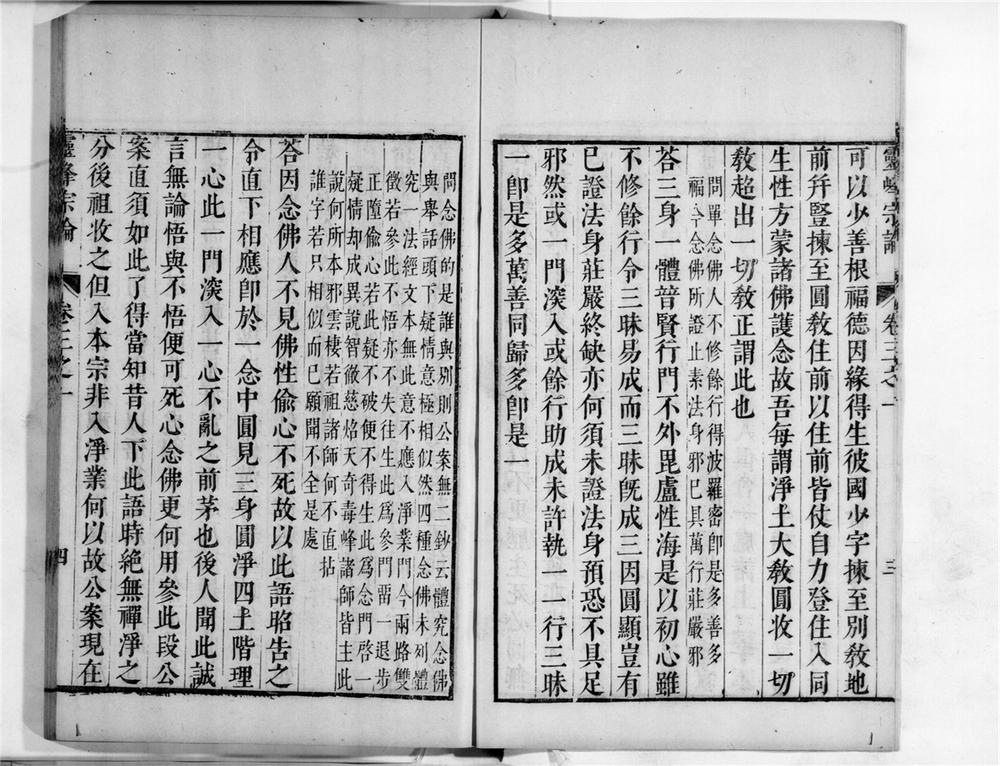 可以少善根福德因緣得生彼國少字揀至別教地
前幷豎揀至圓教住前以住前皆仗自力登住入同
生性方蒙諸佛護念故吾每謂淨土大教圓收一切
教超出一切教正謂此也
問單念佛人不修餘行得波羅密卽是多善多
福今念佛所證止素法身邪已具萬行莊嚴邪
荅三身一體普賢行門不外毘盧性海是以初心雖
不修餘行令三昧易成而三昧旣成三因圓顯豈有
已證法身莊嚴終缺亦何須未證法身預恐不具足
邪然或一門深入或餘行助成未許執一一行三昧
一卽是多萬善同歸多卽是一
靈峰宗論
卷三之一
三
問念佛的是誰與別則公案無二鈔云體究念佛
與舉話頭下疑情意極相似然四種念佛未列體
究一法經文本無此意不應入淨業門今兩路雙
徵若參此不悟亦不失往生此爲參門畱一退步
正墮偷心若此疑不破便不得生此爲念門啓一
疑情却成異說智徹慈烙天奇毒峰諸師皆主此
說何所本邪雲棲若祖諸師何不直拈
誰字若只相似而已願聞不全是處
荅因念佛人不見佛性偷心不死故以此語昭告之
令直下相應卽於一念中圓見三身圓淨四土階理
一心此一門深入一心不亂之前茅也後人聞此誠
言無論悟與不悟便可死心念佛更何用參此段公
案直須如此了得當知昔人下此語時絶無禪淨之
分後祖收之但入本宗非入淨業何以故公案現在
靈峰宗論
卷三之一
四